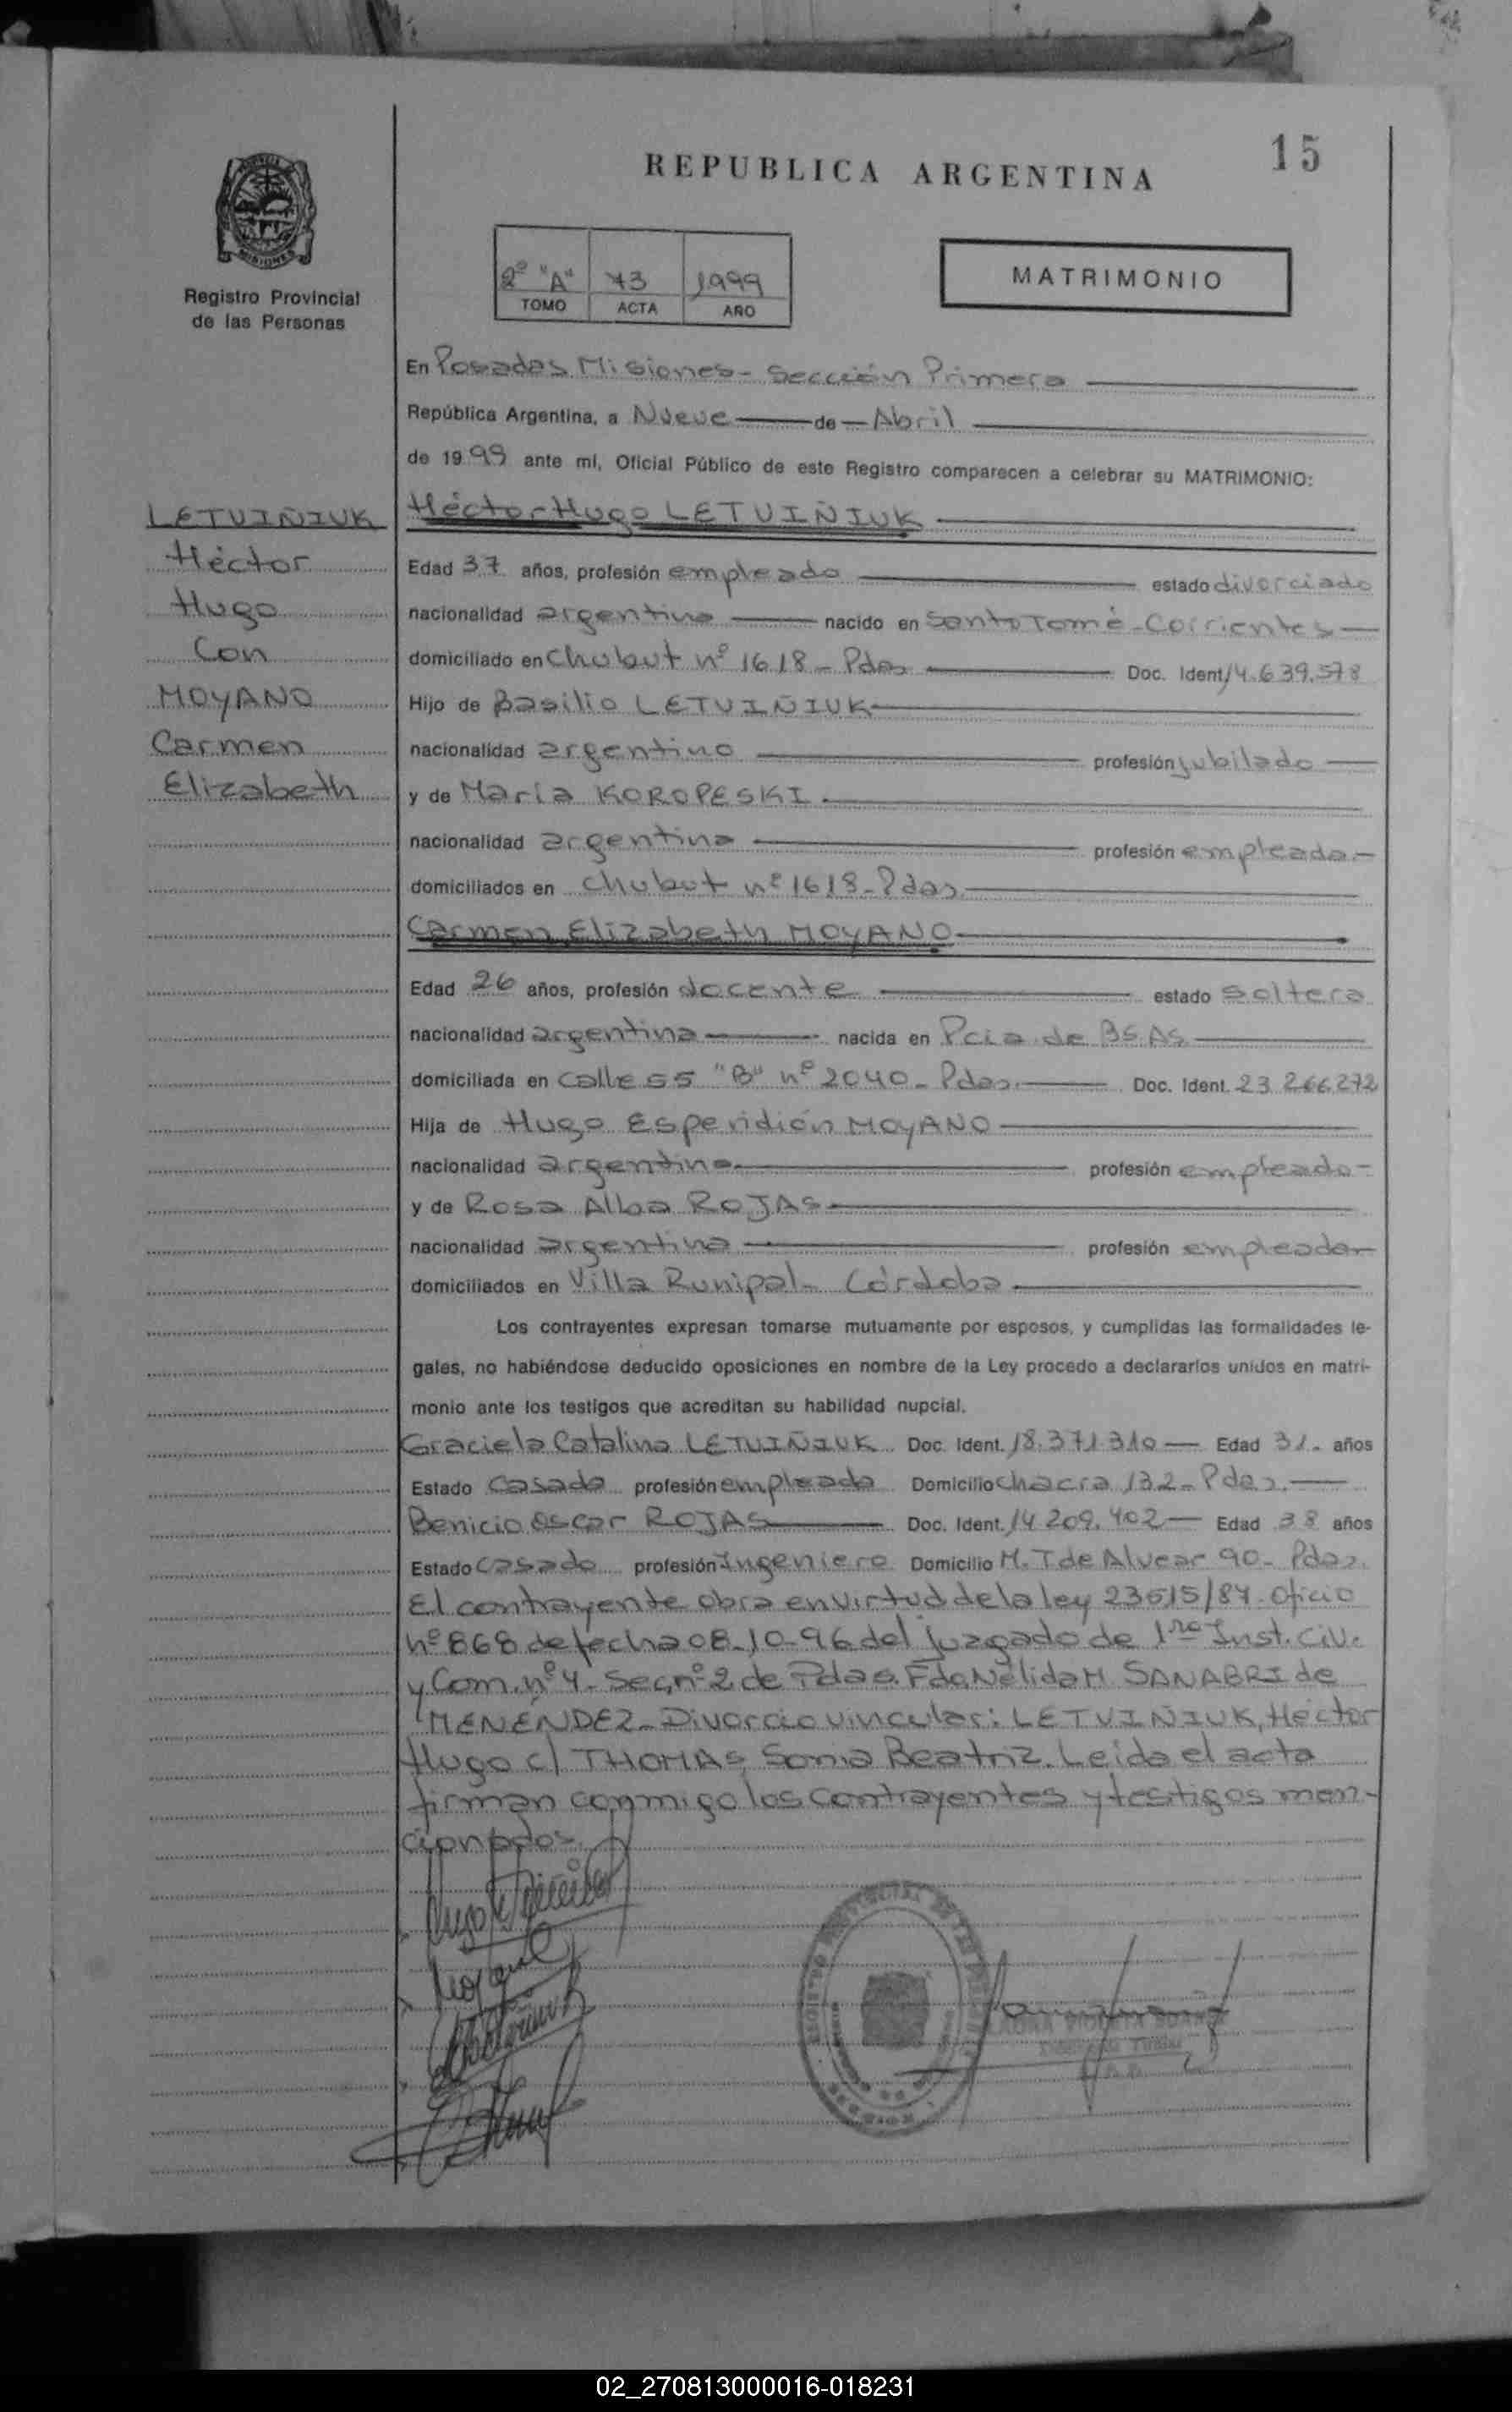 15
REPUBLICA ARGENTINA
MISIONES
Registro Provincial
de las Personas
2º "A" 73 1999
TOMO ACTA AÑO
MATRIMONIO
En Posadas Misiones - Sección Primera
República Argentina, a Nueve de Abril
de 1999 ante mí, Oficial Público de este Registro comparecen a celebrar su MATRIMONIO:
LETVIÑIUK
Héctor
Hugo
Con
MOYANO
Carmen
Elizabeth
Héctor Hugo LETVIÑIUK
Edad 37 años, profesión empleado estado divorciado
nacionalidad argentina nacido en Santo Tomé - Corrientes
domiciliado en Chubut nº 1618 - Pdas Doc. Ident. 14.639.578
Hijo de Basilio LETVIÑIUK
nacionalidad argentino profesión jubilado
y de María KOROPESKI
nacionalidad argentina profesión empleada
domiciliados en Chubut nº 1618 - Pdas
Carmen Elizabeth MOYANO
Edad 26 años, profesión docente estado soltera
nacionalidad argentina nacida en Pcia de BS AS
domiciliada en calle 55 "B" nº 2040 - Pdas. Doc. Ident. 23.266.272
Hija de Hugo Esperidión MOYANO
nacionalidad argentino profesión empleado
y de Rosa Alba ROJAS
nacionalidad argentina profesión
domiciliados en Villa Runipal - Córdoba
Los contrayentes expresan tomarse mutuamente por esposos, y cumplidas las formalidades le-
gales, no habiéndose deducido oposiciones en nombre de la Ley procedo a declararlos unidos en matri-
monio ante los testigos que acreditan su habilidad nupcial.
Graciela Catalina LETVIÑIUK Doc. Ident. 18.371.310 Edad 31 años
Estado Casada profesión empleada Domicilio chacra 132 - Pdas.
Benicio Oscar ROJAS Doc. Ident. 14 209.402 Edad 38 años
Estado Casado profesión Ingeniero Domicilio M. T de Alvear 90 - Pdas.
El contrayente obra en virtud de la ley 23515/87. Oficio
nº 868 de fecha 08-10-96 del juzgado de 1ra Inst. Civ.
y Com. nº 4 - Sec. nº 2 de Pdas. Fdo Nélida M. SANABRI de
MENÉNDEZ - Divorcio vincular: LETVIÑIUK, Héctor
Hugo c/ THOMAS, Sonia Beatriz. Leída el acta
firman conmigo los contrayentes y testigos men-
cionados.
02_270813000016-018231